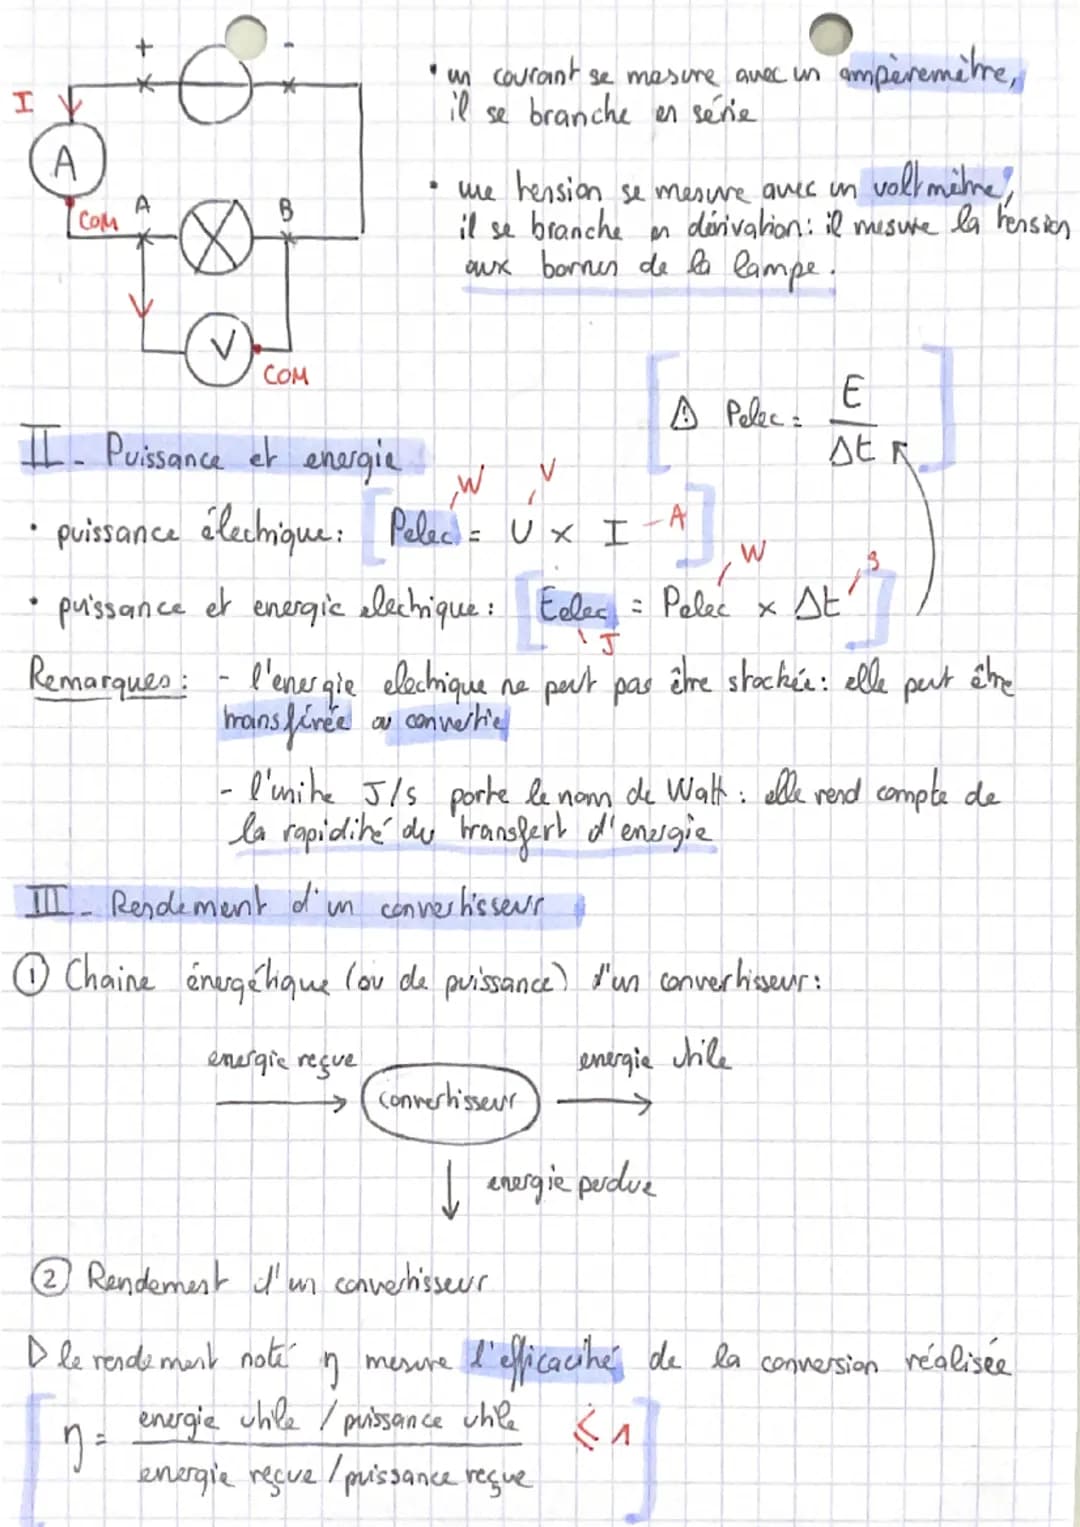 + -
• un courant se mesure avec un ampèremètre,
il se branche en série
I
A
COM
A B
• une tension se mesure avec un voltmètre,
il se branche en dérivation: il mesure la tension
aux bornes de la lampe.
V
COM
⚠ Pelec = E / Δt
II - Puissance et energie
W V
• puissance électrique: [Pelec = U × I - A]
W s
• puissance et energie electrique: [Eelec = Pelec × Δt]
J
Remarques: - l'energie electrique ne peut pas être stockée: elle peut être
transférée ou convertie
- l'unite J/s porte le nom de Watt: elle rend compte de
la rapidité du transfert d'energie
III - Rendement d'un convertisseur
① Chaine énergétique (ou de puissance) d'un convertisseur:
energie reçue energie utile
convertisseur
energie perdue
② Rendement d'un convertisseur
▷ le rendement noté η mesure l'efficacité de la conversion réalisée
η = energie utile / puissance utile ⩽ 1
energie reçue / puissance reçue